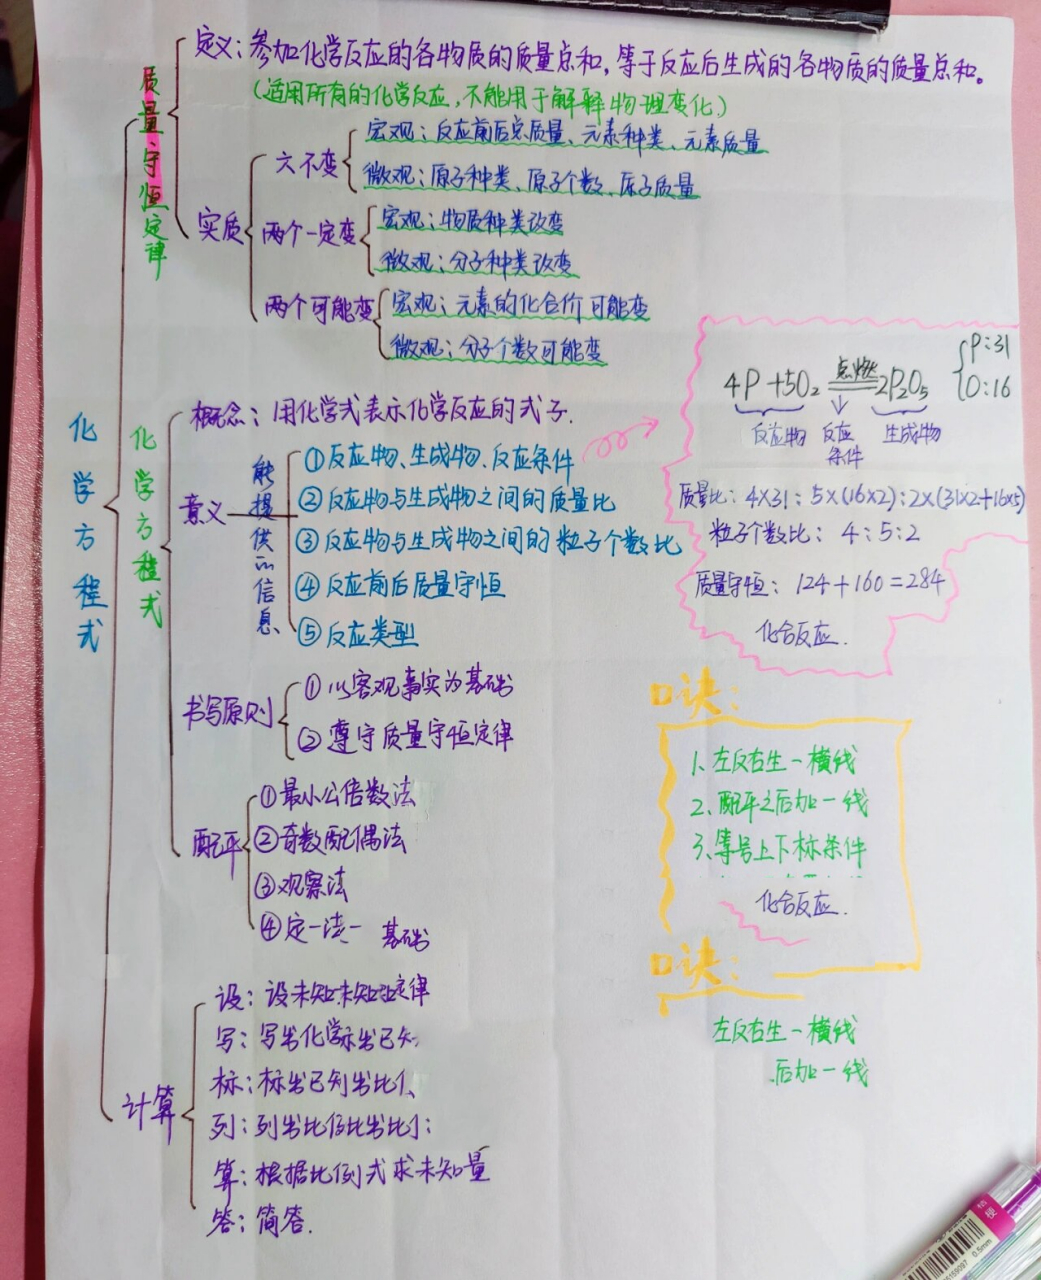 化学方程式
质量守恒定律
定义：参加化学反应的各物质的质量总和，等于反应后生成的各物质的质量总和。
（适用所有的化学反应，不能用于解释物理变化）
实质
六不变
宏观：反应前后总质量、元素种类、元素质量
微观：原子种类、原子个数、原子质量
两个一定变
宏观：物质种类改变
微观：分子种类改变
两个可能变
宏观：元素的化合价可能变
微观：分子个数可能变
化学方程式
概念：用化学式表示化学反应的式子.
意义
能提供的信息
①反应物、生成物、反应条件
②反应物与生成物之间的质量比
③反应物与生成物之间的粒子个数比
④反应前后质量守恒
⑤反应类型
书写原则
①以客观事实为基础
②遵守质量守恒定律
配平
①最小公倍数法
②奇数配偶法
③观察法
④定一法一 基础
计算
设：设未知未知定律
写：写出化学示出已知
标：标出已列出比
列：列出比比出比
算：根据比例式求未知量
答：简答.
P:31
O:16
点燃
4P+5O₂══2P₂O₅
反应物 反应条件 生成物
质量比：4×31：5×(16×2)：2×(31×2+16×5)
粒子个数比：4:5:2
质量守恒：124+160=284
化合反应.
口诀：
1、左反右生一横线
2、配平之后加一线
3、等号上下标条件
化合反应.
口诀：
左反右生一横线
后加一线
0.5mm